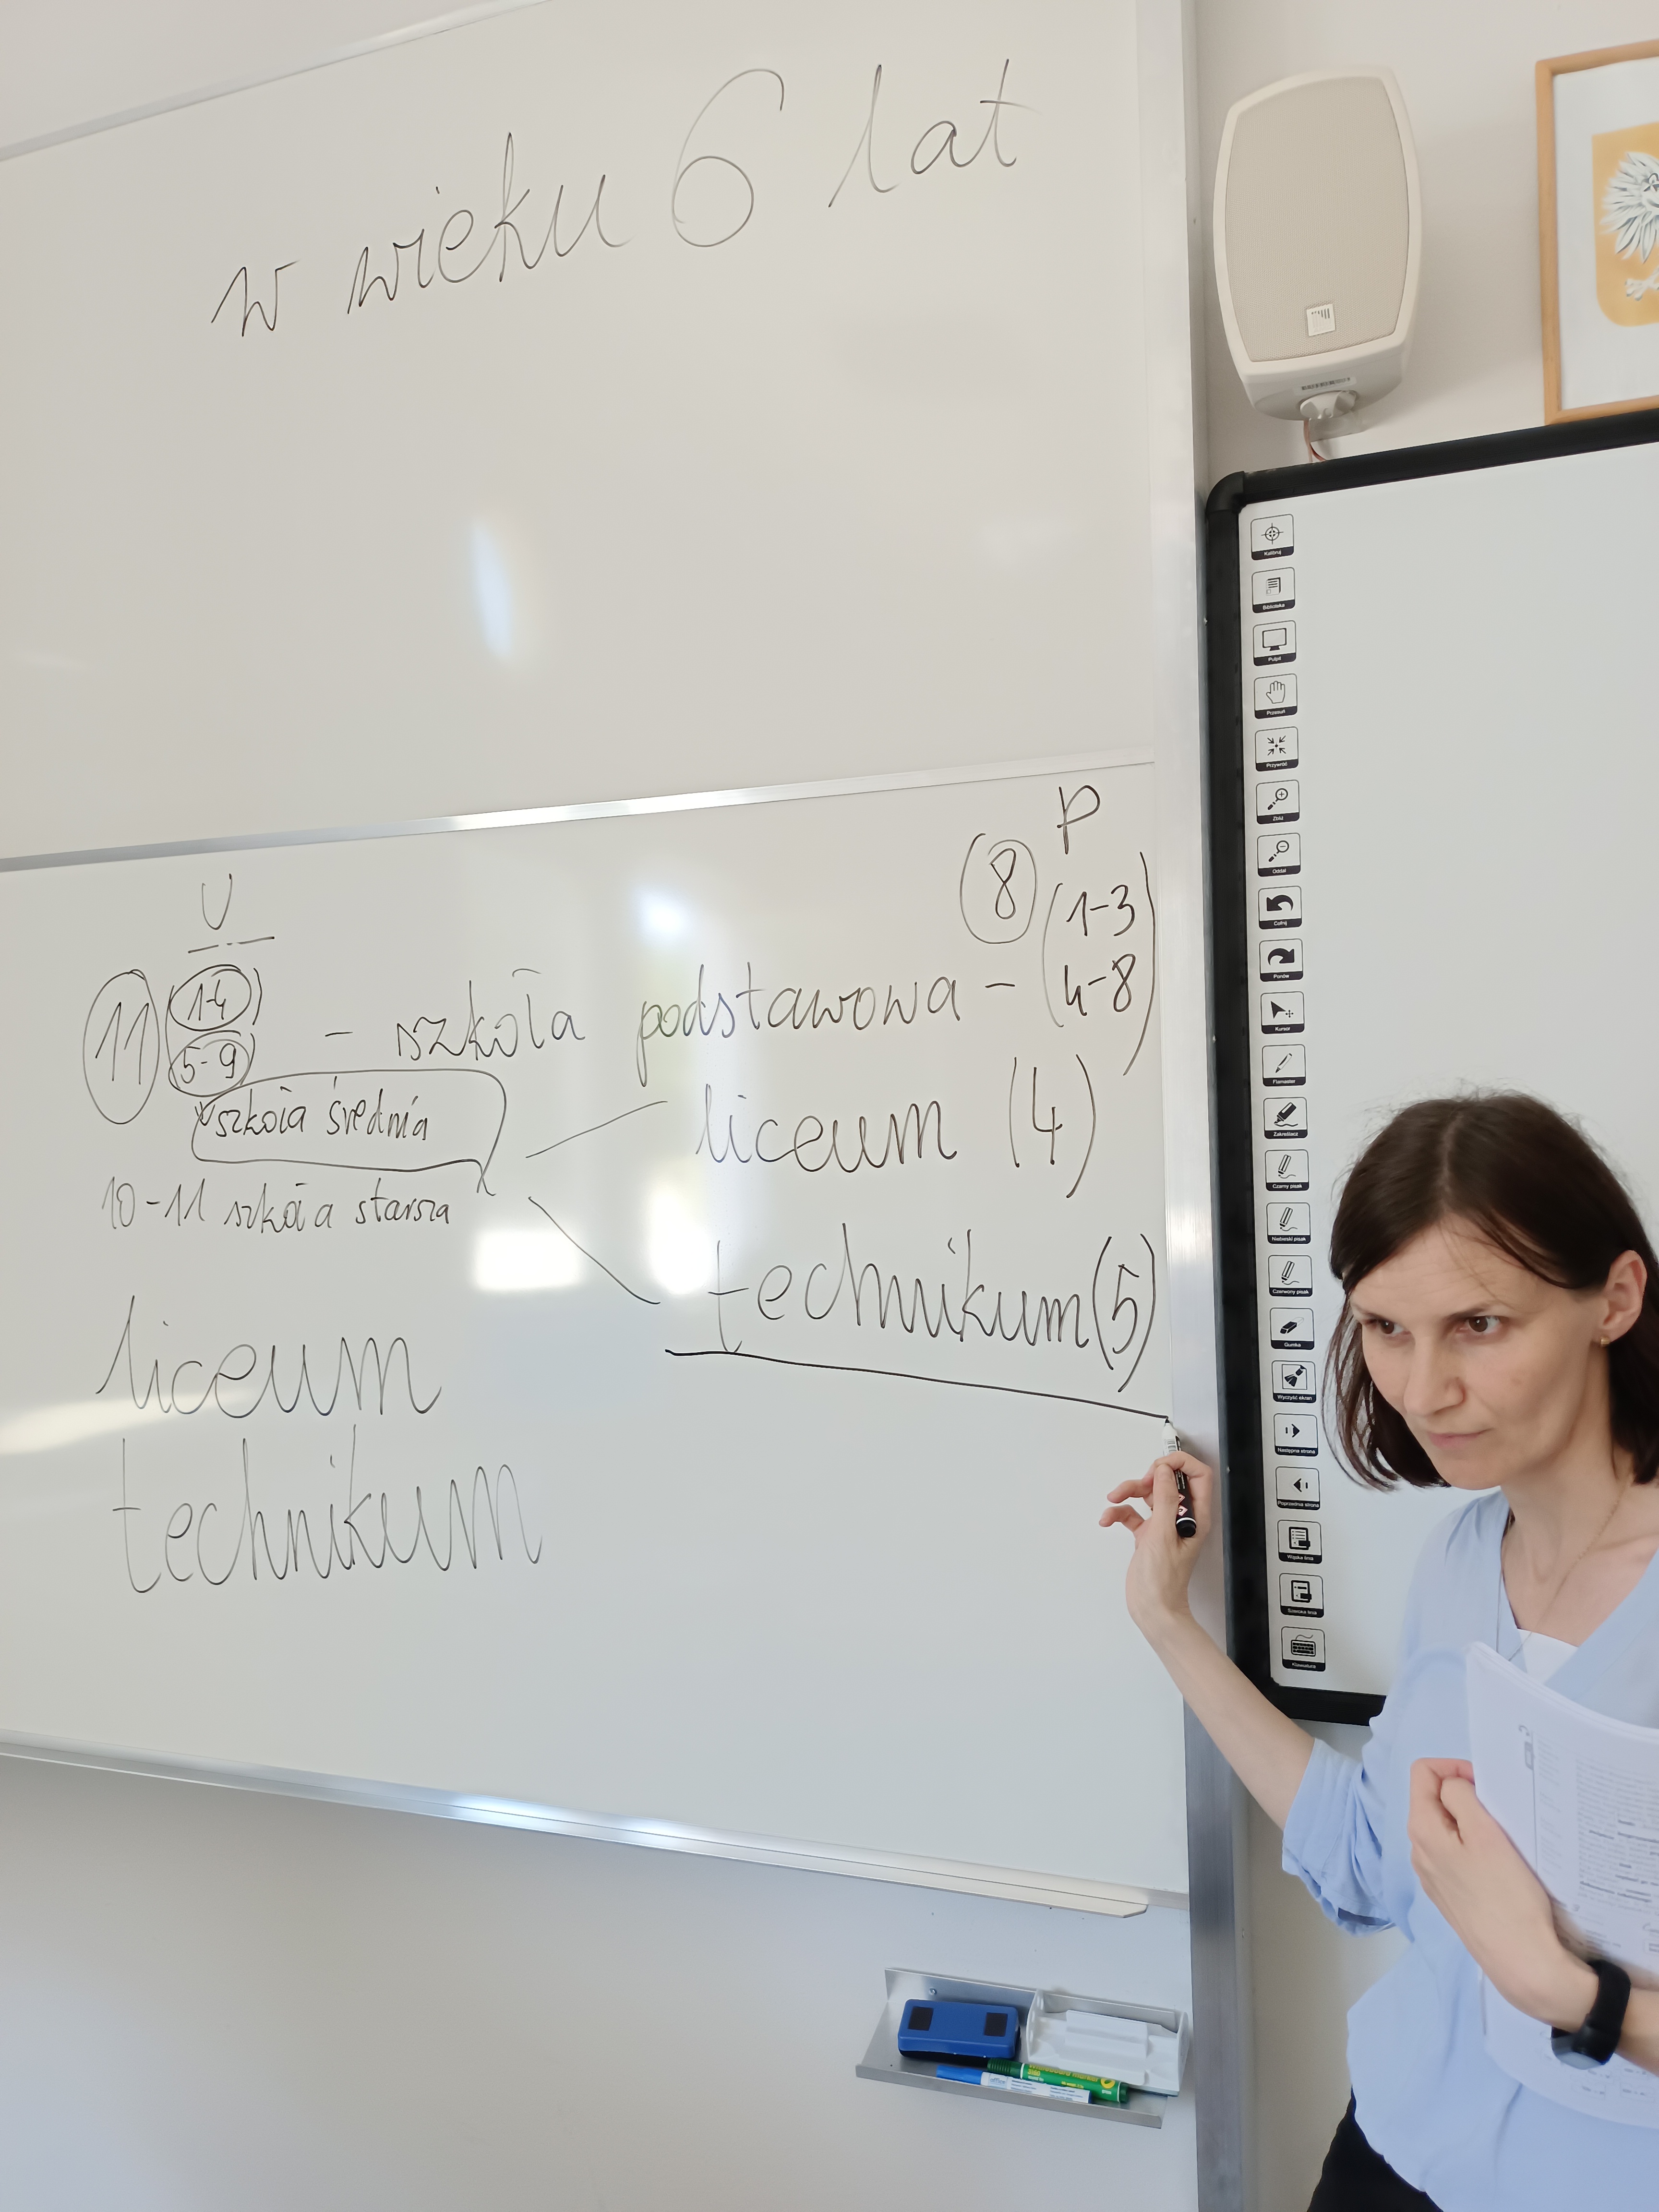 w wieku 6 lat
U
P
11 (1-4)
5-9
- szkoła podstawowa - (8) (1-3
4-8)
szkoła średnia
liceum (4)
10-11 szkoła starsza
technikum (5)
liceum
technikum
Kalibruj
Biblioteka
Pulpit
Przesuń
Przywróć
Zbliż
Oddal
Cofnij
Ponów
Kursor
Flamaster
Zakreślacz
Czarny pisak
Niebieski pisak
Czerwony pisak
Gumka
Wyczyść ekran
Następna strona
Poprzednia strona
Klawiatura